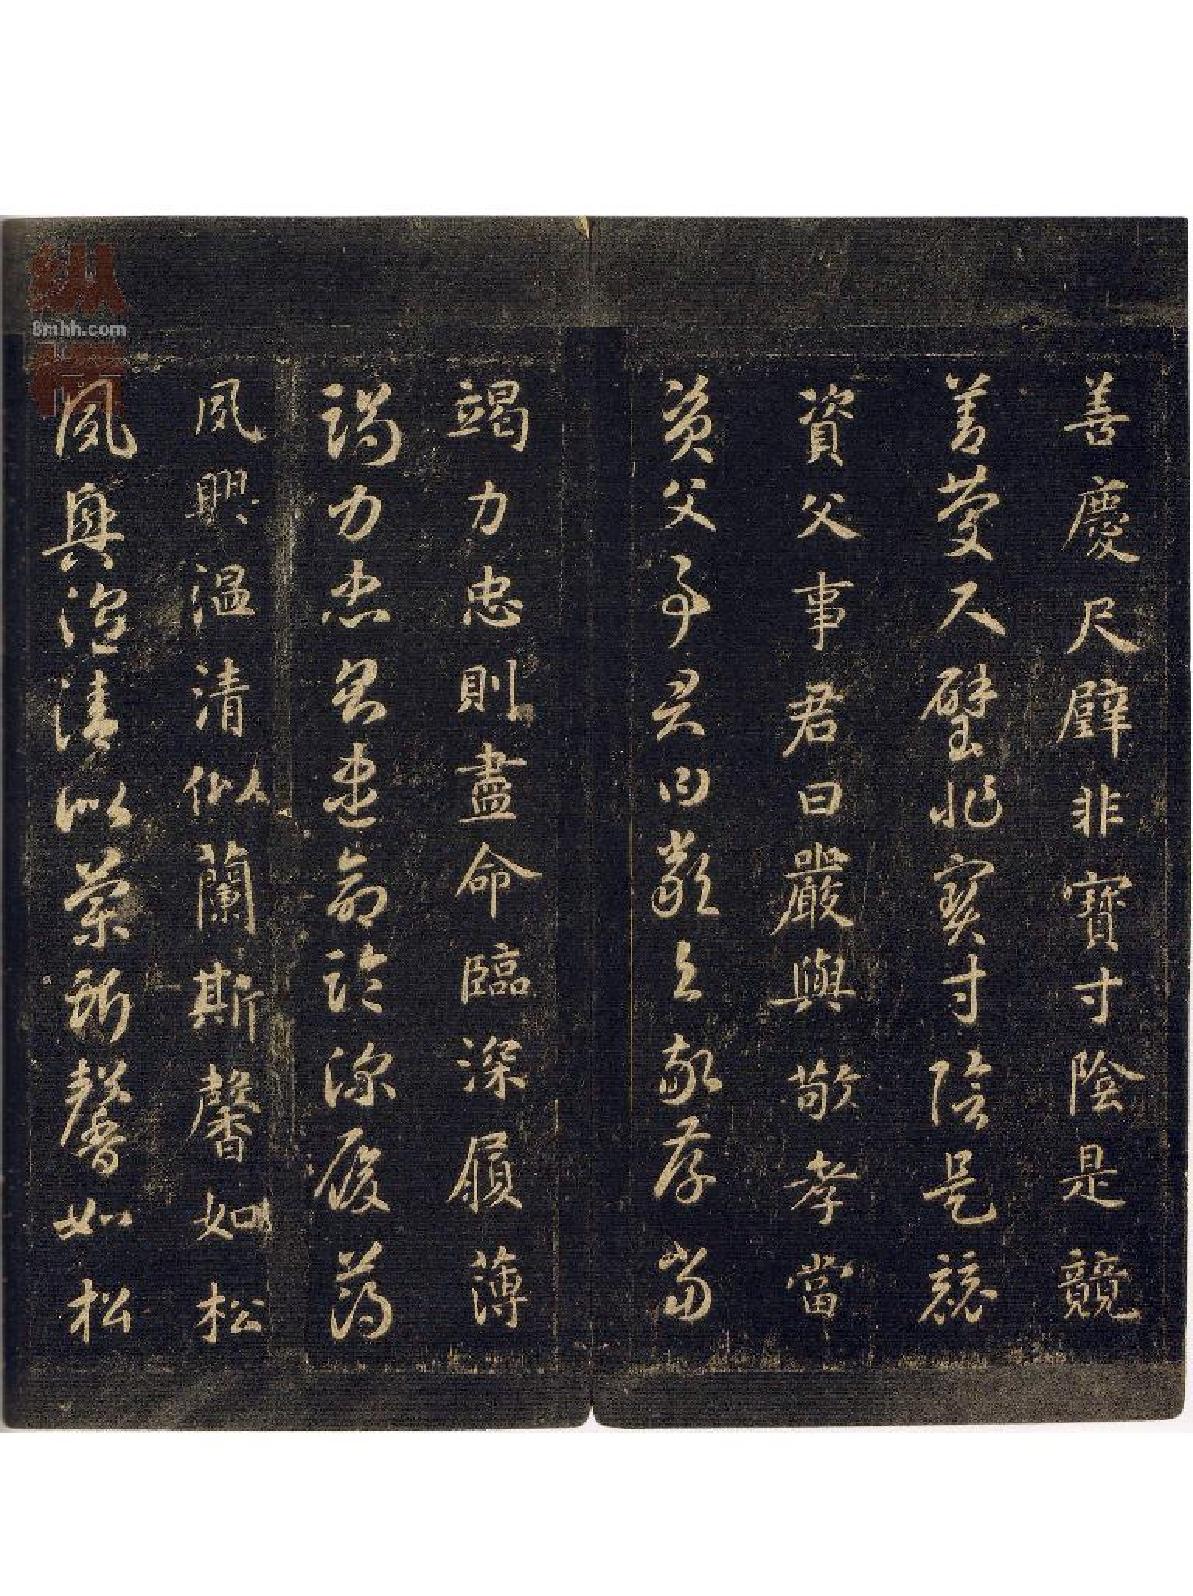 善慶尺璧非寶寸陰是競
善慶尺璧非寶寸陰是競
資父事君曰嚴與敬孝當
資父事君曰嚴与敬孝當
竭力忠則盡命臨深履薄
竭力忠則盡命臨深履薄
夙興温清似蘭斯馨如松
夙興温清似蘭斯馨如松
8mhh.com